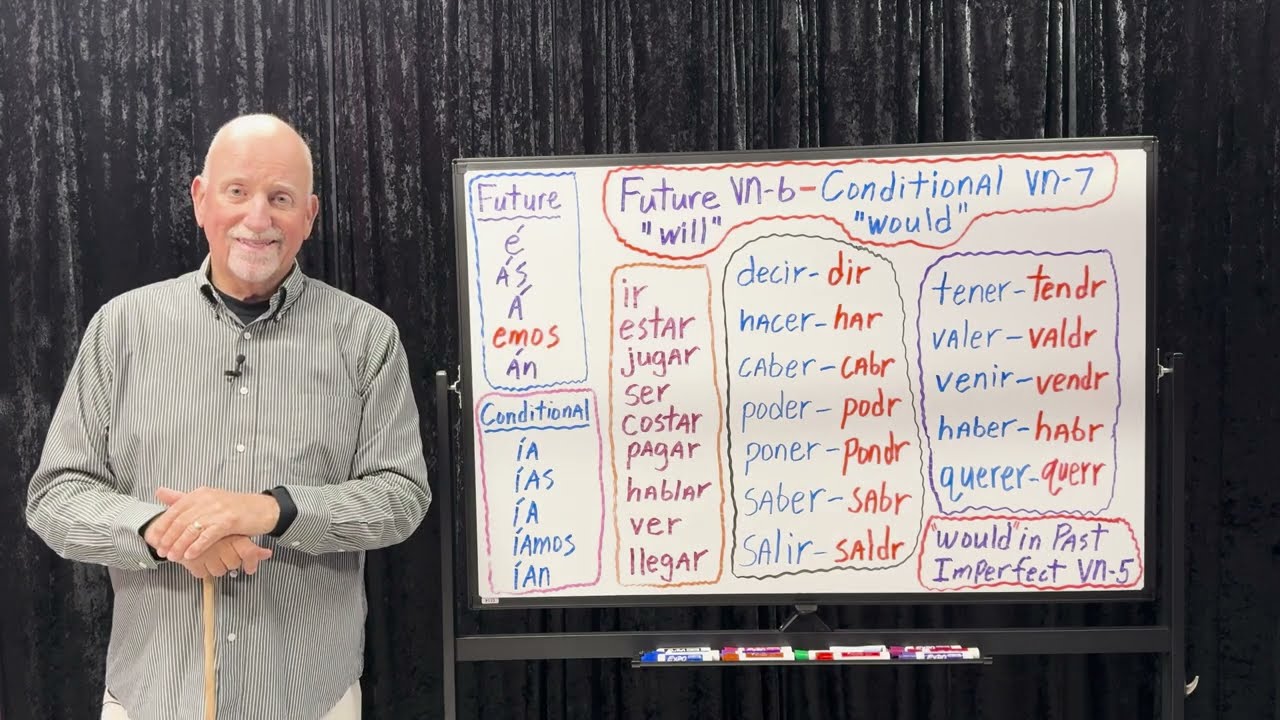 Future
é
ÁS
Á
emos
Án
Conditional
íA
íAS
íA
íAmos
íAn
Future VN-6 - Conditional VN-7
"will" "would"
ir
estAr
jugAr
ser
costAr
pAgAr
hAblAr
ver
llegAr
decir - dir
hAcer - hAr
cAber - cAbr
poder - podr
poner - pondr
sAber - sAbr
sAlir - sAldr
tener - tendr
vAler - vAldr
venir - vendr
hAber - hAbr
querer - querr
"would" in PAst
Imperfect VN-5
EXPO
EXPO